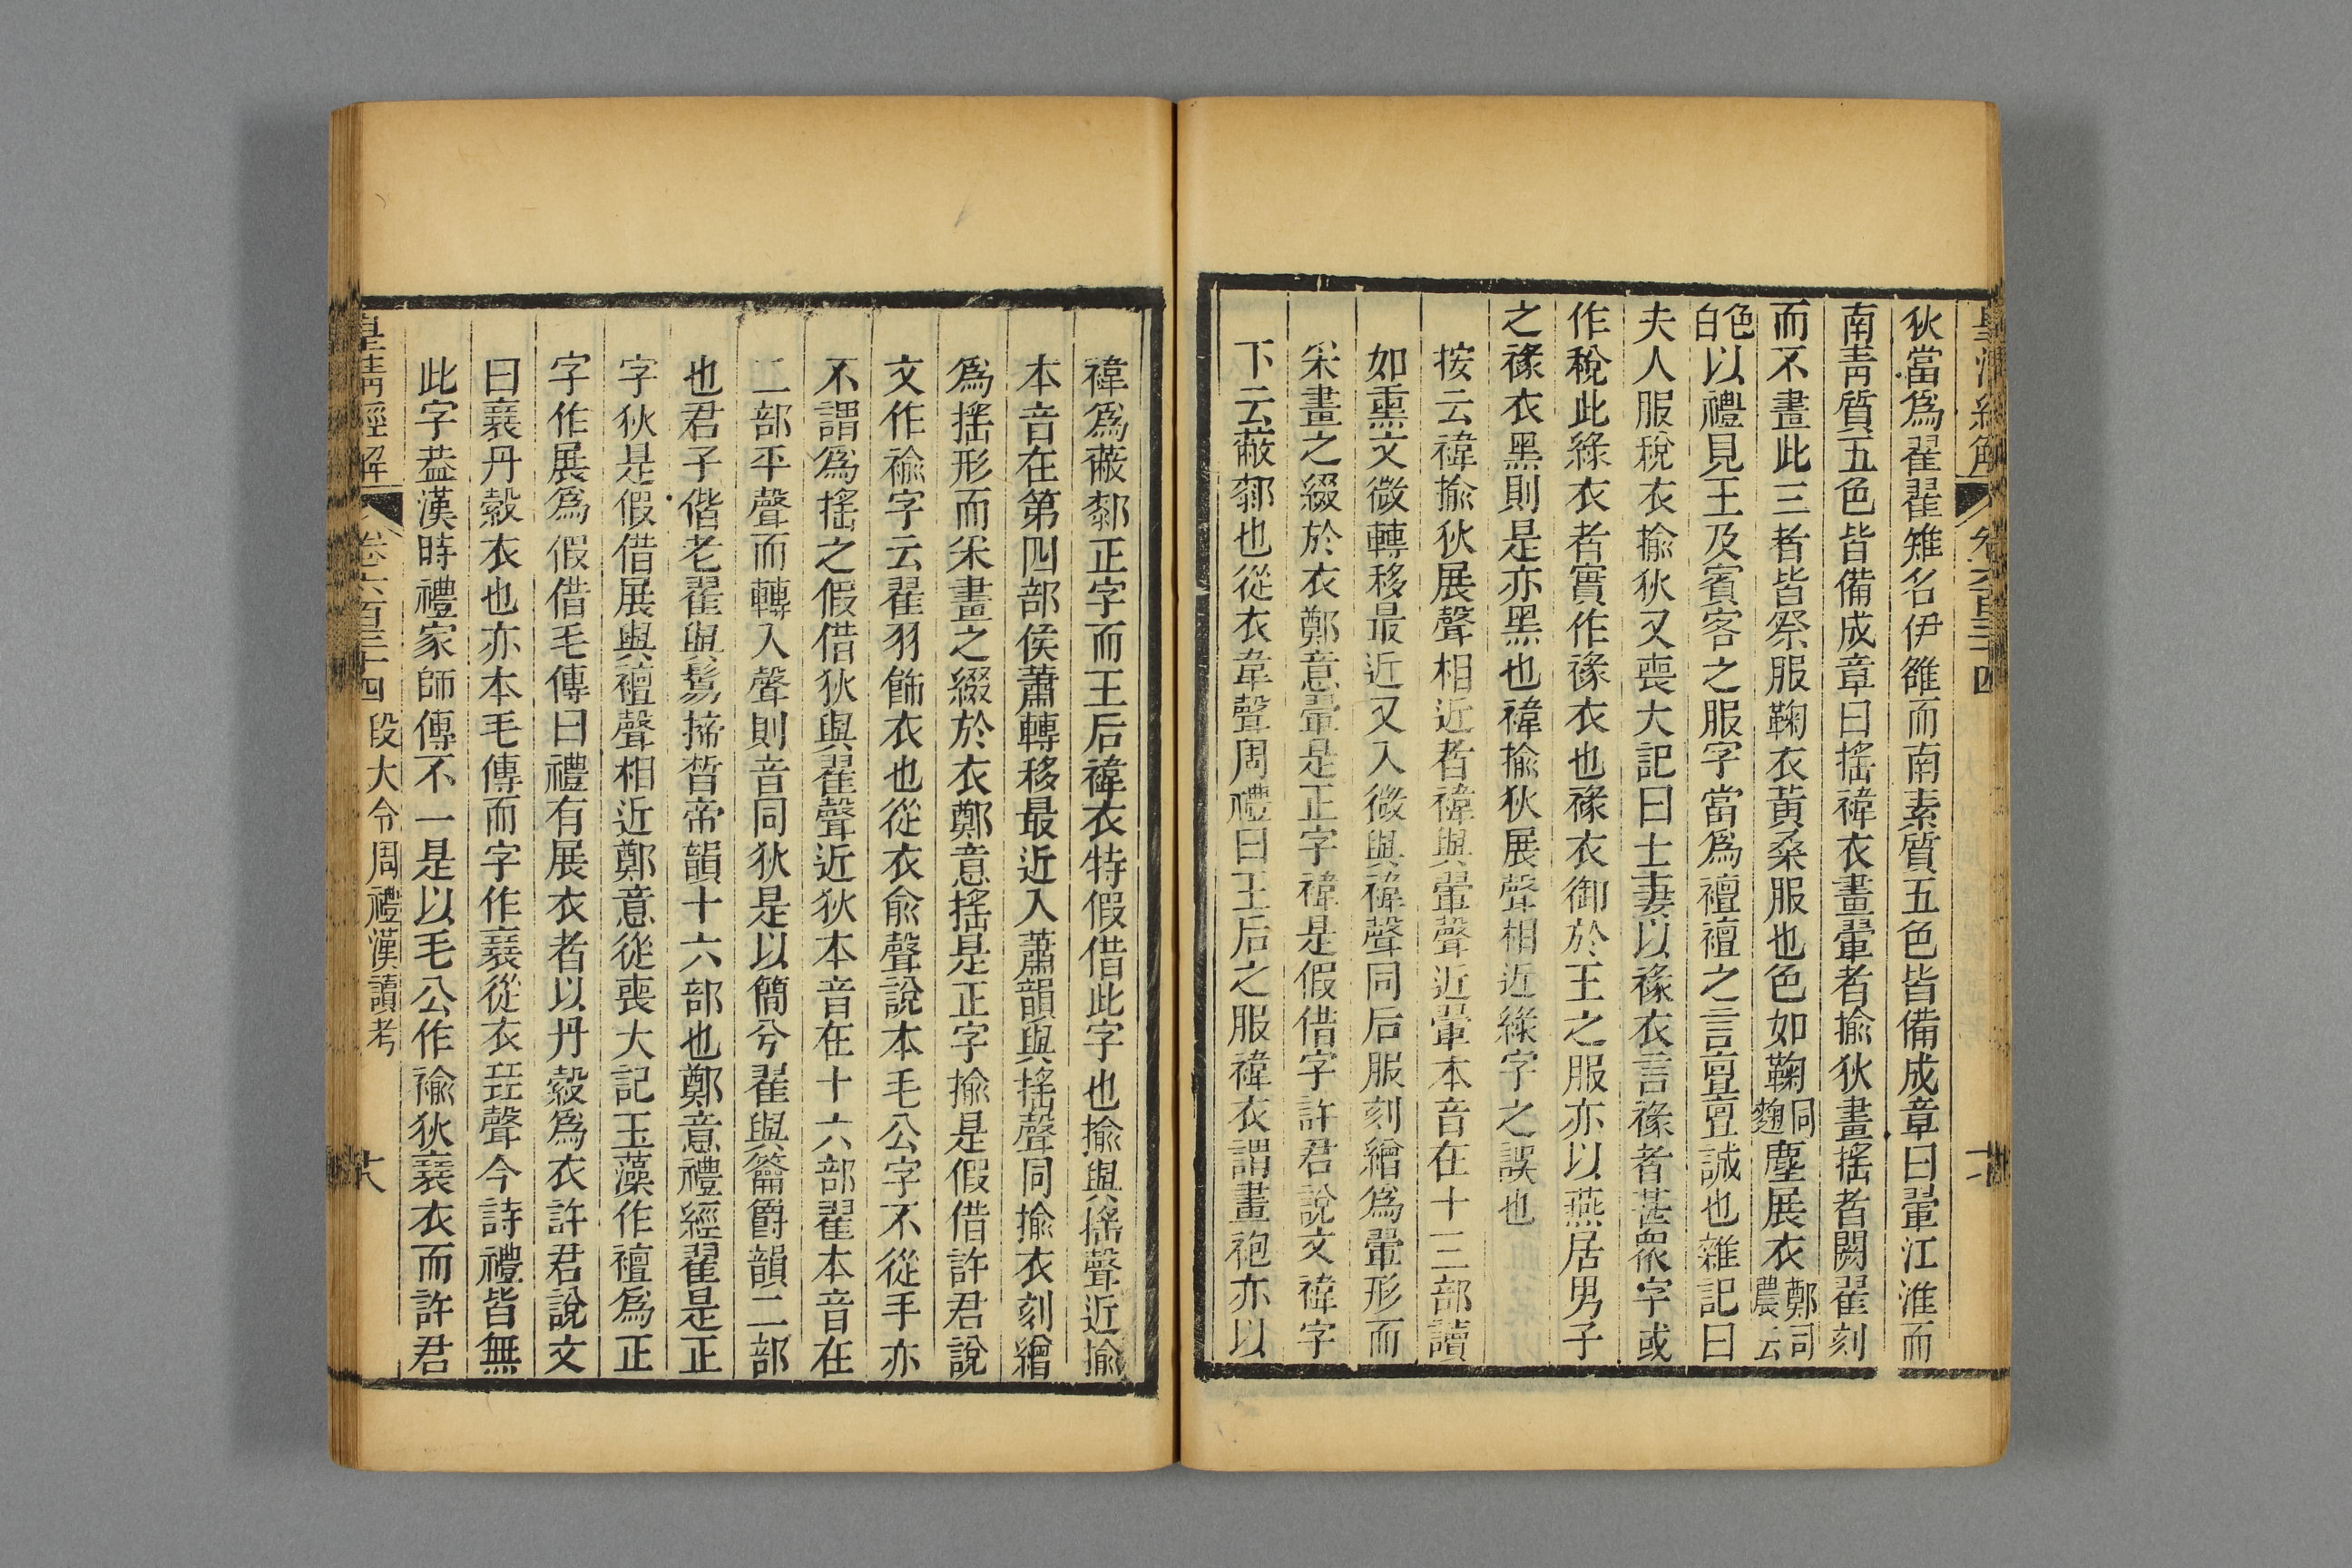 狄當爲翟翟雉名伊雒而南素質五色皆備成章曰翬江淮而
南靑質五色皆備成章曰搖褘衣畫翬者揄狄畫搖者闕翟刻
而不畫此三者皆祭服鞠衣黃桑服也色如鞠同麴塵展衣鄭司農云
白色以禮見王及賓客之服字當爲襢襢之言亶亶誠也雜記曰
夫人服稅衣揄狄又喪大記曰士妻以褖衣言褖者甚衆字或
作稅此綠衣者實作褖衣也褖衣御於王之服亦以燕居男子
之褖衣黑則是亦黑也褘揄狄展聲相近綠字之誤也
按云褘揄狄展聲相近者褘與翬聲近翬本音在十三部讀
如熏文微轉移最近又入微與褘聲同后服刻繒爲翬形而
采畫之綴於衣鄭意翬是正字褘是假借字許君說文褘字
下云蔽厀也從衣韋聲周禮曰王后之服褘衣謂畫袍亦以
褘爲蔽厀正字而王后褘衣特假借此字也揄與搖聲近揄
本音在第四部侯蕭轉移最近入蕭韻與搖聲同揄衣刻繒
爲搖形而采畫之綴於衣鄭意搖是正字揄是假借許君說
文作褕字云翟羽飾衣也從衣俞聲說本毛公字不從手亦
不謂爲搖之假借狄與翟聲近狄本音在十六部翟本音在
二部平聲而轉入聲則音同狄是以簡兮翟與籥爵韻二部
也君子偕老翟與鬄揥晳帝韻十六部也鄭意禮經翟是正
字狄是假借展與襢聲相近鄭意從喪大記玉藻作襢爲正
字作展爲假借毛傳曰禮有展衣者以丹縠爲衣許君說文
曰襄丹縠衣也亦本毛傳而字作襄從衣㠭聲今詩禮皆無
此字葢漢時禮家師傳不一是以毛公作褕狄襄衣而許君
皇淸經解 卷六百三十四 段大令周禮漢讀考 大